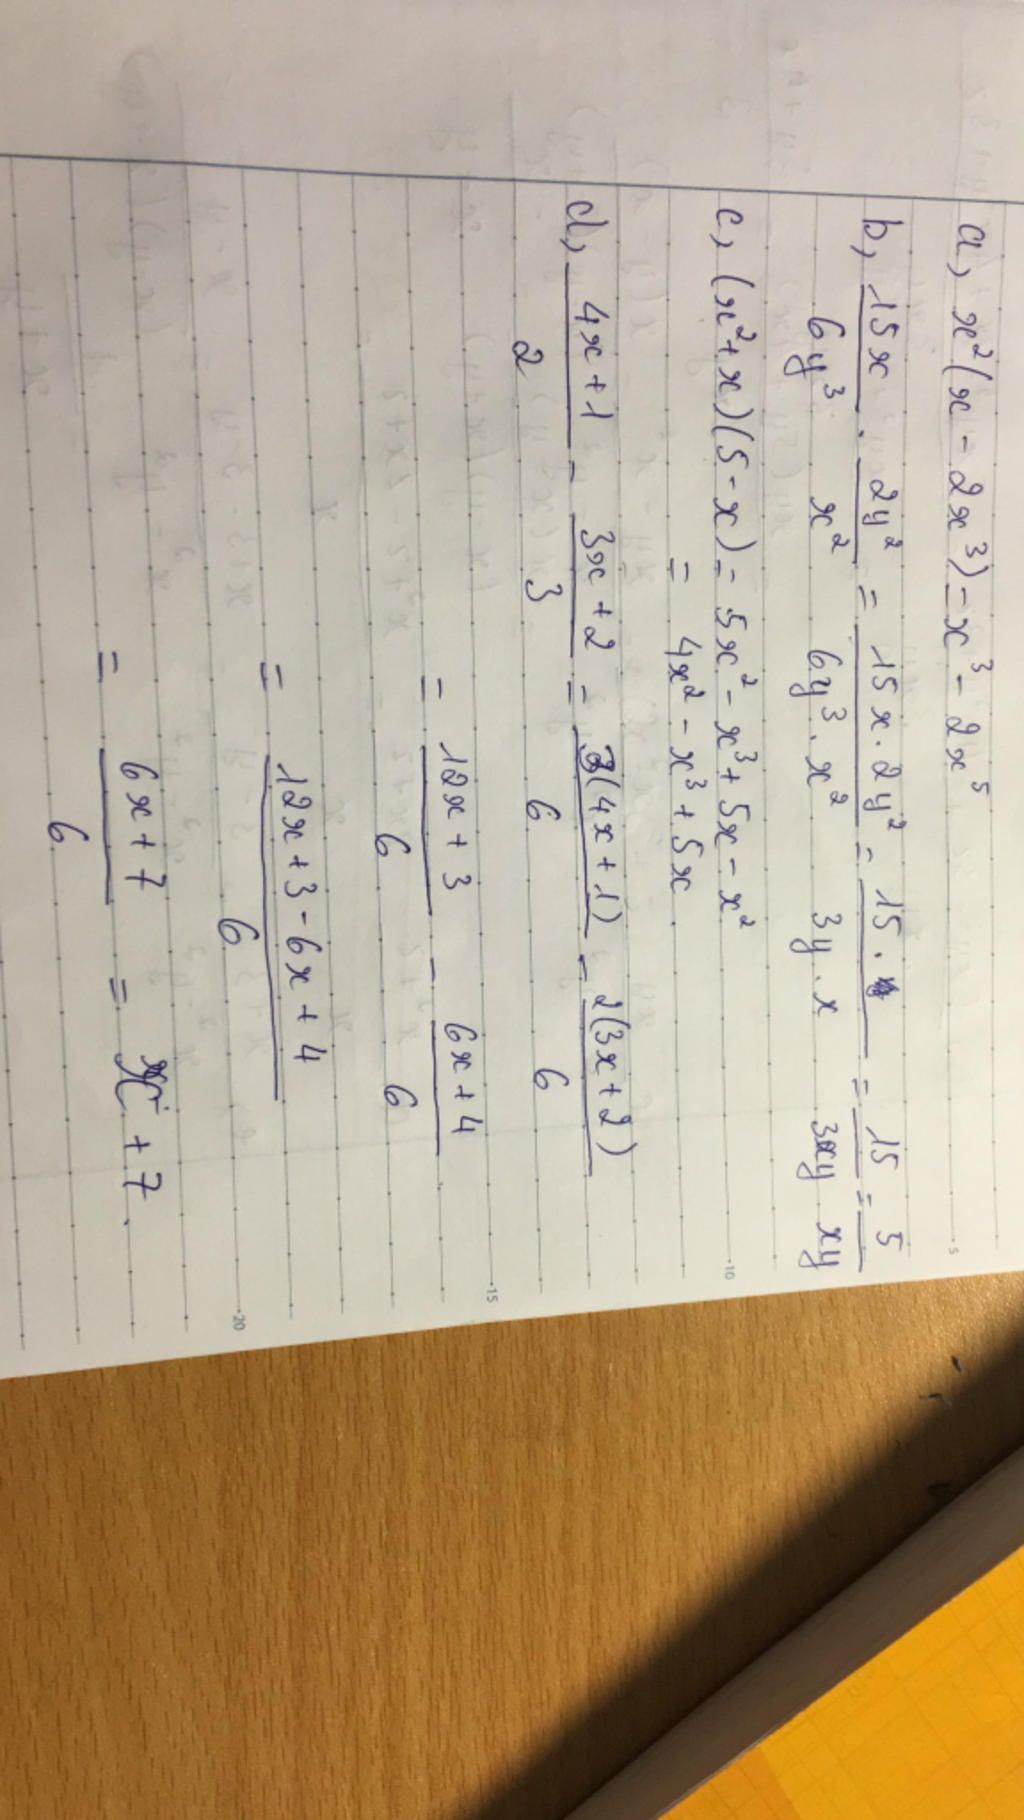 a, x²(x - 2x³) = x³ - 2x⁵
b, 15x/6y³ · 2y²/x² = 15x·2y²/6y³·x² = 15·/3y·x = 15/3xy = 5/xy
c, (x²+x)(5-x) = 5x² - x³ + 5x - x²
= 4x² - x³ + 5x
d, 4x+1/2 - 3x+2/3 = 3(4x+1)/6 - 2(3x+2)/6
= 12x+3/6 - 6x+4/6
= 12x+3-6x+4/6
= 6x+7/6 = x + 7
5
10
15
20